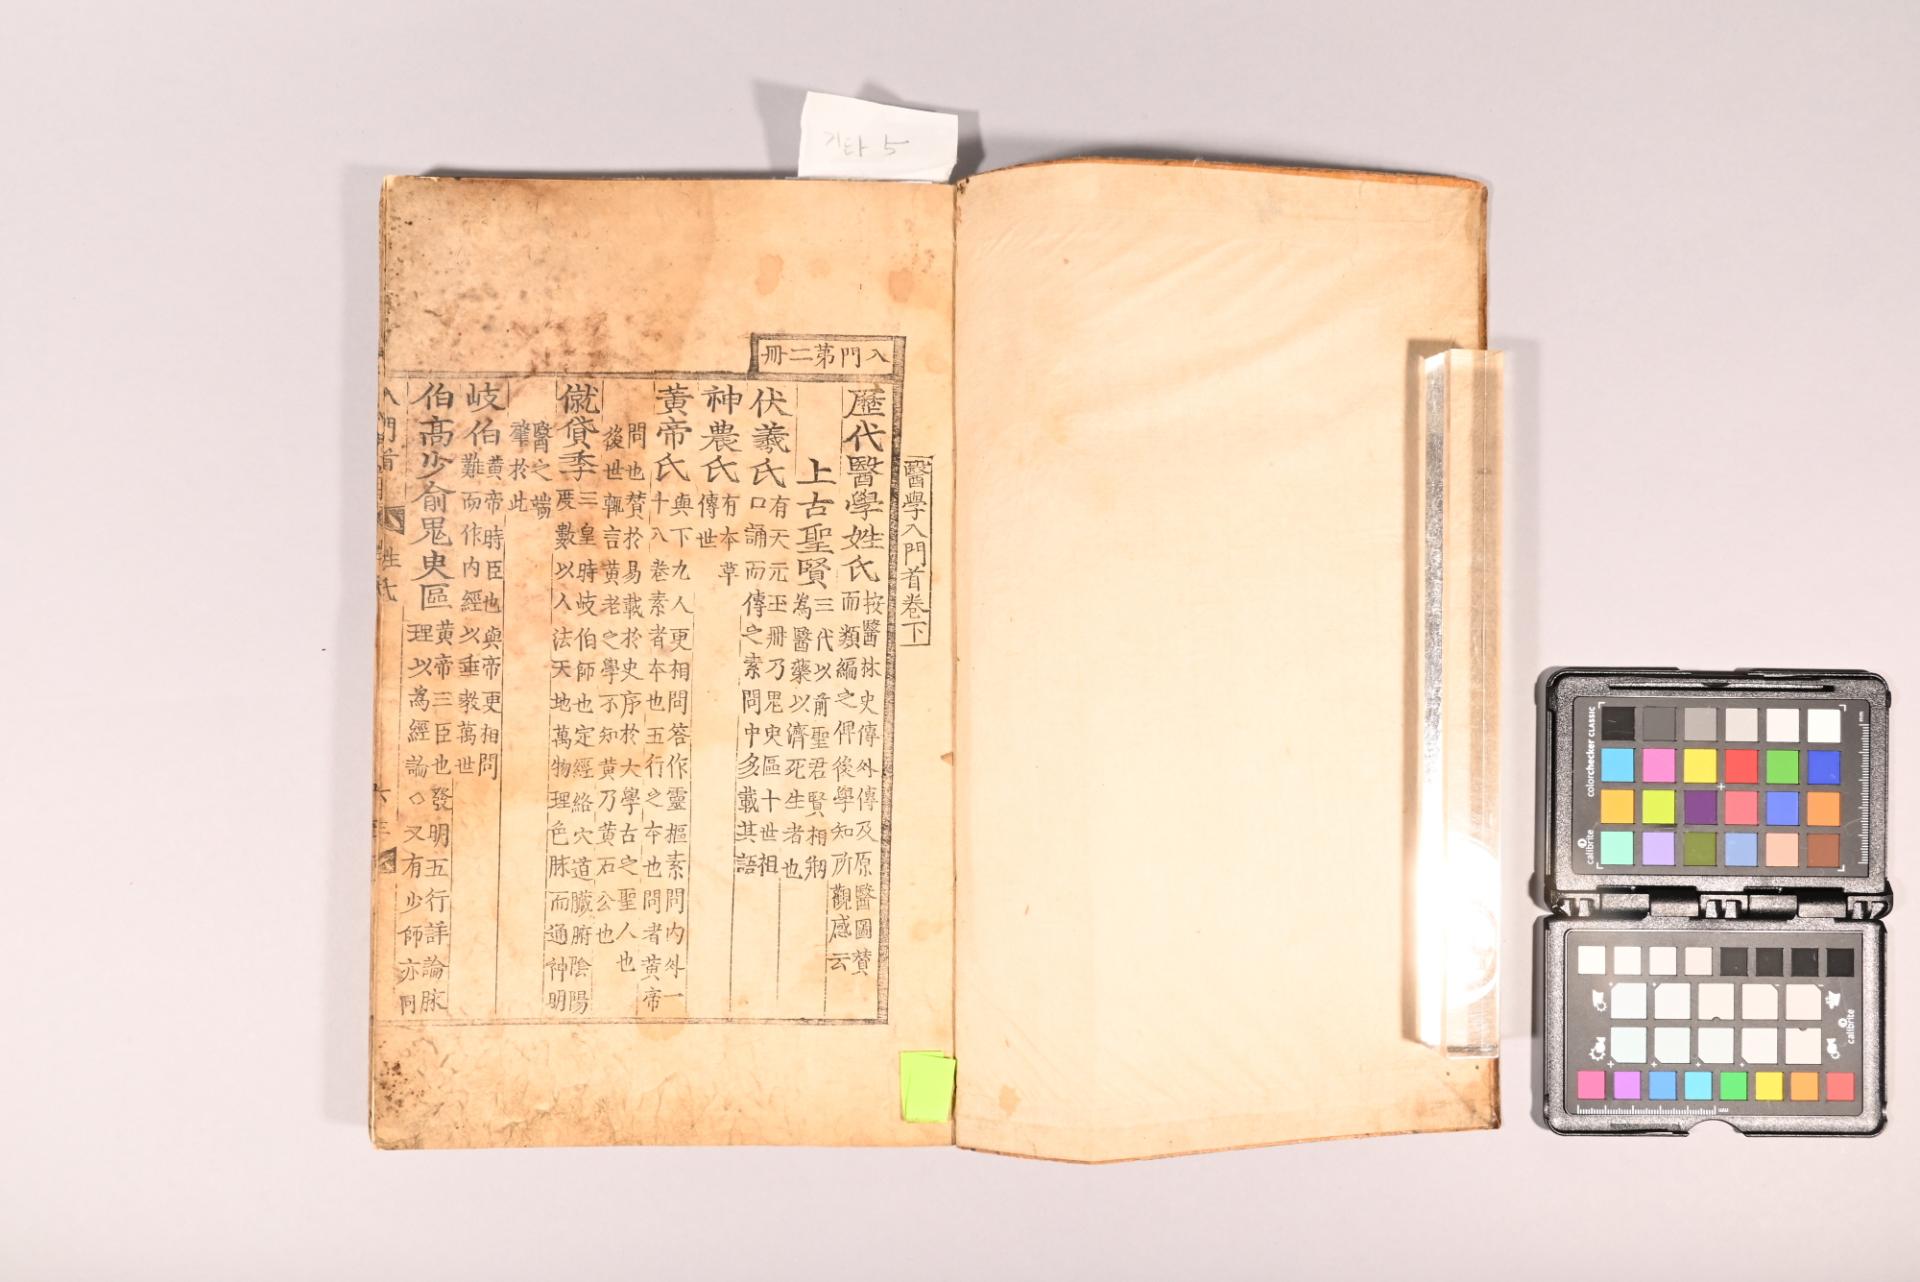 기타 5
入門第二冊
醫學入門首卷下
歷代醫學姓氏
按醫林史傳外傳及原醫圖贊
而類編之俾後學知所觀感云
上古聖賢
三代以前聖君賢相剏
為醫藥以濟死生者也
伏羲氏
有天元玉冊乃鬼臾區十世祖
口誦而傳之素問中多載其語
神農氏
有本草
傳世
黃帝氏
與下九人更相問答作靈樞素問內外一
十八卷素者本也五行之本也問者黃帝
問也贊於易載於史序於大學古之聖人也
後世輒言黃老之學不知黃乃黃石公也
僦貸季
三皇時岐伯師也定經絡穴道臟腑陰陽
度數以人法天地萬物理色脉而通神明
醫之端
肇於此
岐伯
黃帝時臣也與帝更相問
難而作內經以垂教萬世
伯高少俞鬼臾區
黃帝三臣也發明五行詳論脉
理以為經論◇又有少師亦同
入門首
姓氏
calibrite
colorchecker CLASSIC
mm
calibrite
mm